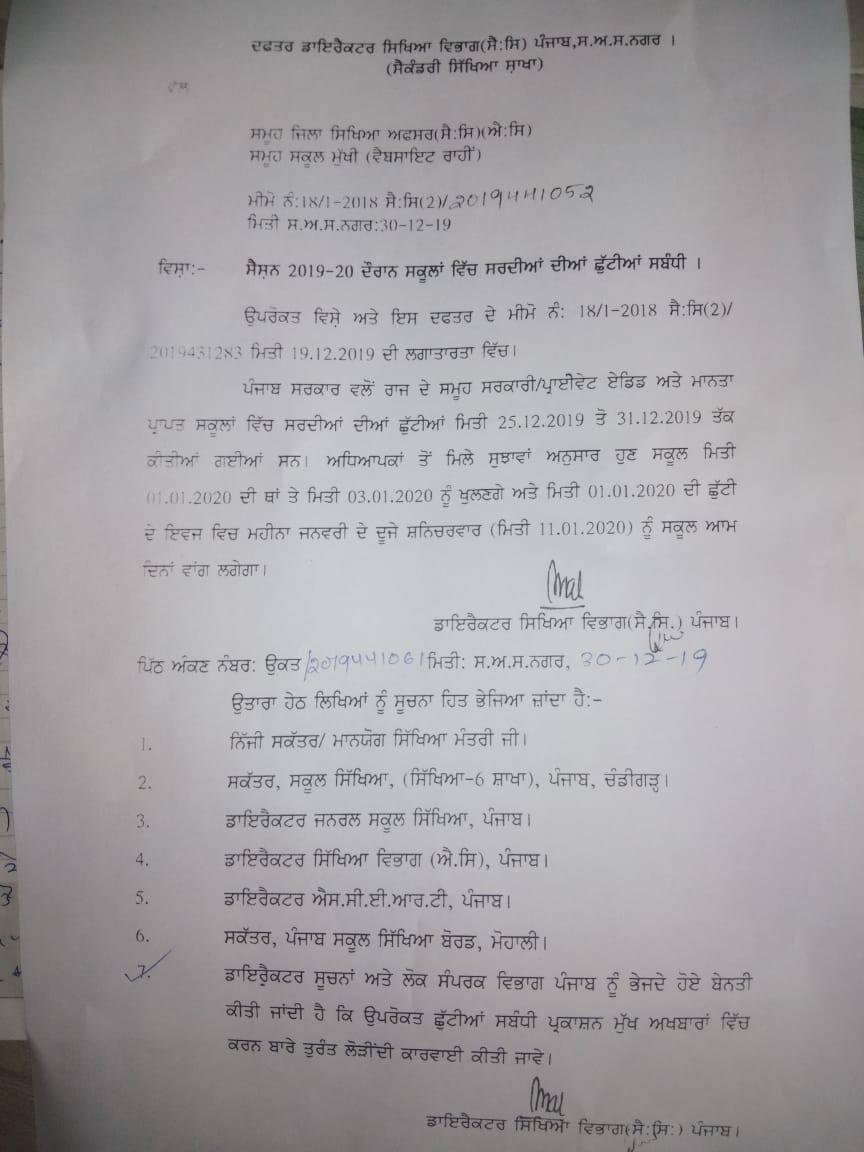 ਦਫਤਰ ਡਾਇਰੈਕਟਰ ਸਿਖਿਆ ਵਿਭਾਗ(ਸੈ:ਸਿ) ਪੰਜਾਬ,ਸ.ਅ.ਸ.ਨਗਰ ।
(ਸੈਕੰਡਰੀ ਸਿੱਖਿਆ ਸ਼ਾਖਾ)
ਸਮੂਹ ਜਿਲਾ ਸਿਖਿਆ ਅਫਸਰ(ਸੈ:ਸਿ)(ਐ:ਸਿ)
ਸਮੂਹ ਸਕੂਲ ਮੁੱਖੀ (ਵੈਬਸਾਇਟ ਰਾਹੀਂ)
ਮੀਮੋ ਨੰ:18/1-2018 ਸੈ:ਸਿ(2)/2019441052
ਮਿਤੀ ਸ.ਅ.ਸ.ਨਗਰ:30-12-19
ਵਿਸ਼ਾ:- ਸੈਸ਼ਨ 2019-20 ਦੌਰਾਨ ਸਕੂਲਾਂ ਵਿੱਚ ਸਰਦੀਆਂ ਦੀਆਂ ਛੁੱਟੀਆਂ ਸਬੰਧੀ ।
ਉਪਰੋਕਤ ਵਿਸ਼ੇ ਅਤੇ ਇਸ ਦਫਤਰ ਦੇ ਮੀਮੋ ਨੰ: 18/1-2018 ਸੈ:ਸਿ(2)/
2019431283 ਮਿਤੀ 19.12.2019 ਦੀ ਲਗਾਤਾਰਤਾ ਵਿੱਚ।
ਪੰਜਾਬ ਸਰਕਾਰ ਵਲੋਂ ਰਾਜ ਦੇ ਸਮੂਹ ਸਰਕਾਰੀ/ਪ੍ਰਾਈਵੇਟ ਏਡਿਡ ਅਤੇ ਮਾਨਤਾ
ਪ੍ਰਾਪਤ ਸਕੂਲਾਂ ਵਿੱਚ ਸਰਦੀਆਂ ਦੀਆਂ ਛੁੱਟੀਆਂ ਮਿਤੀ 25.12.2019 ਤੋਂ 31.12.2019 ਤੱਕ
ਕੀਤੀਆਂ ਗਈਆਂ ਸਨ। ਅਧਿਆਪਕਾਂ ਤੋਂ ਮਿਲੇ ਸੁਝਾਵਾਂ ਅਨੁਸਾਰ ਹੁਣ ਸਕੂਲ ਮਿਤੀ
01.01.2020 ਦੀ ਥਾਂ ਤੇ ਮਿਤੀ 03.01.2020 ਨੂੰ ਖੁਲਣਗੇ ਅਤੇ ਮਿਤੀ 01.01.2020 ਦੀ ਛੁੱਟੀ
ਦੇ ਇਵਜ ਵਿਚ ਮਹੀਨਾ ਜਨਵਰੀ ਦੇ ਦੂਜੇ ਸ਼ਨਿਚਰਵਾਰ (ਮਿਤੀ 11.01.2020) ਨੂੰ ਸਕੂਲ ਆਮ
ਦਿਨਾਂ ਵਾਂਗ ਲਗੇਗਾ।
ਡਾਇਰੈਕਟਰ ਸਿਖਿਆ ਵਿਭਾਗ(ਸੈ.ਸਿ.) ਪੰਜਾਬ।
ਪਿੱਠ ਅੰਕਣ ਨੰਬਰ: ਉਕਤ/2019441061 ਮਿਤੀ: ਸ.ਅ.ਸ.ਨਗਰ, 30-12-19
ਉਤਾਰਾ ਹੇਠ ਲਿਖਿਆਂ ਨੂੰ ਸੂਚਨਾ ਹਿਤ ਭੇਜਿਆ ਜ਼ਾਂਦਾ ਹੈ:-
1. ਨਿੱਜੀ ਸਕੱਤਰ/ ਮਾਨਯੋਗ ਸਿੱਖਿਆ ਮੰਤਰੀ ਜੀ।
2. ਸਕੱਤਰ, ਸਕੂਲ ਸਿੱਖਿਆ, (ਸਿੱਖਿਆ-6 ਸ਼ਾਖਾ), ਪੰਜਾਬ, ਚੰਡੀਗੜ੍ਹ।
3. ਡਾਇਰੈਕਟਰ ਜਨਰਲ ਸਕੂਲ ਸਿੱਖਿਆ, ਪੰਜਾਬ।
4. ਡਾਇਰੈਕਟਰ ਸਿੱਖਿਆ ਵਿਭਾਗ (ਐ.ਸਿ), ਪੰਜਾਬ।
5. ਡਾਇਰੈਕਟਰ ਐਸ.ਸੀ.ਈ.ਆਰ.ਟੀ, ਪੰਜਾਬ।
6. ਸਕੱਤਰ, ਪੰਜਾਬ ਸਕੂਲ ਸਿੱਖਿਆ ਬੋਰਡ, ਮੋਹਾਲੀ।
7. ਡਾਇਰੈਕਟਰ ਸੂਚਨਾਂ ਅਤੇ ਲੋਕ ਸੰਪਰਕ ਵਿਭਾਗ ਪੰਜਾਬ ਨੂੰ ਭੇਜਦੇ ਹੋਏ ਬੇਨਤੀ
ਕੀਤੀ ਜਾਂਦੀ ਹੈ ਕਿ ਉਪਰੋਕਤ ਛੁੱਟੀਆਂ ਸਬੰਧੀ ਪ੍ਰਕਾਸ਼ਨ ਮੁੱਖ ਅਖਬਾਰਾਂ ਵਿੱਚ
ਕਰਨ ਬਾਰੇ ਤੁਰੰਤ ਲੋੜੀਂਦੀ ਕਾਰਵਾਈ ਕੀਤੀ ਜਾਵੇ।
ਡਾਇਰੈਕਟਰ ਸਿੱਖਿਆ ਵਿਭਾਗ(ਸੈ:ਸਿ:) ਪੰਜਾਬ।